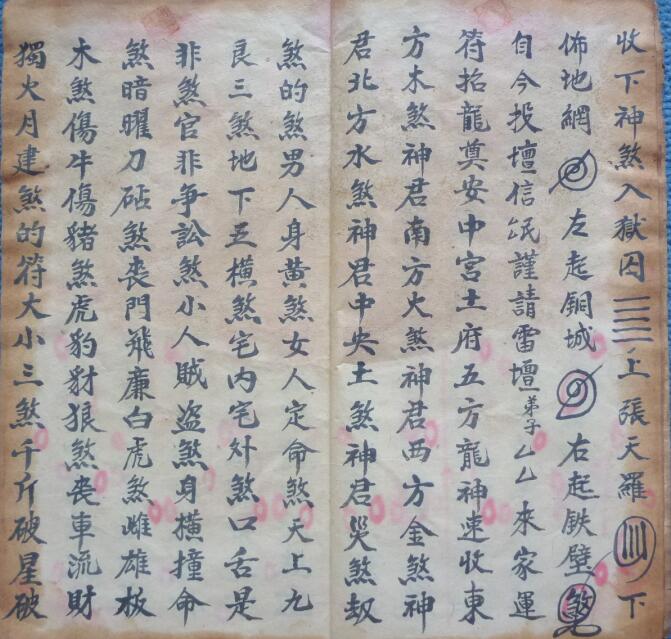 收下神煞入獄囚三三上張天羅下
佈地網左起銅城右起鉄壁煞
自今投壇信民謹請雷壇弟子厶厶來家運
符招龍奠安中宮土府五方龍神速收東
方木煞神君南方火煞神君西方金煞神
君北方水煞神君中央土煞神君災煞刼
煞的煞男人身黄煞女人定命煞天上九
良三煞地下五横煞宅内宅外煞口舌是
非煞官非争訟煞小人賊盗煞身横撞命
煞暗曜刀砧煞喪門飛廉白虎煞雌雄板
木煞傷牛傷豬煞虎豹豺狼煞喪車流財
獨火月建煞的符大小三煞千斤破星破